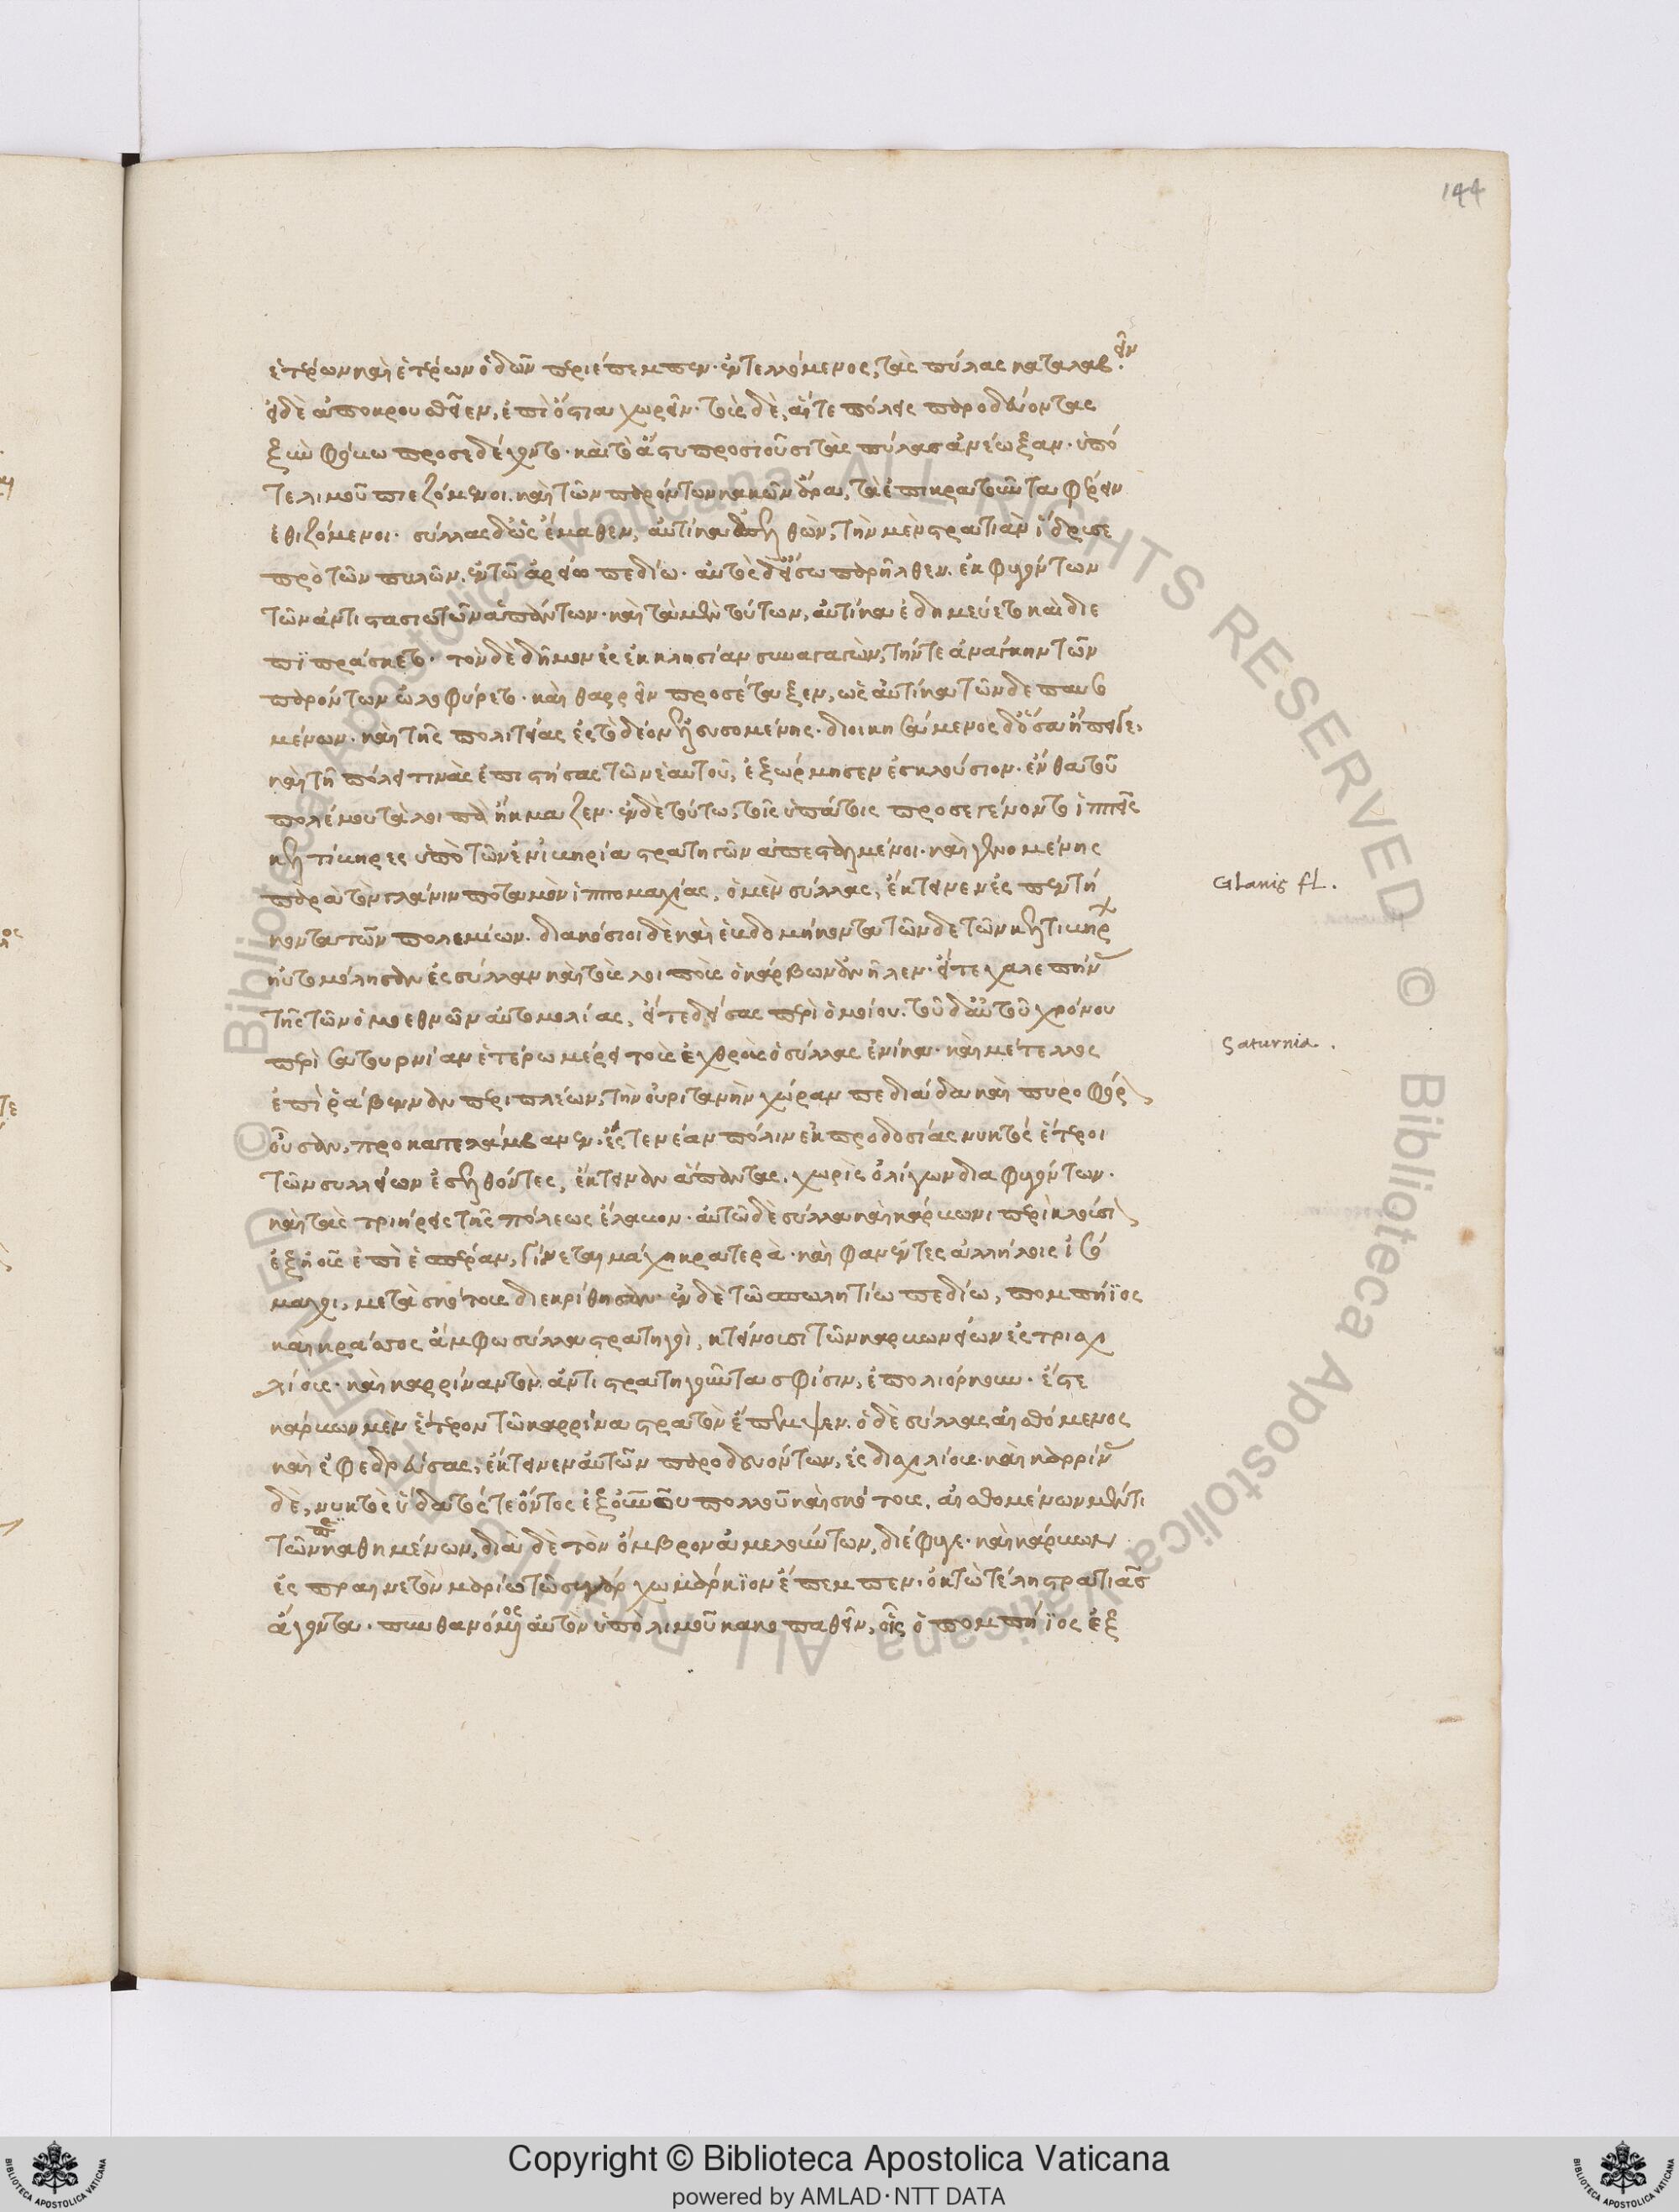 144
ἑτέρων καὶ ἑτέρων ὁδῶν περιέπεμπεν. ἐντελλόμενος, τὰς πύλας καταλαβεῖν.
εἰ δὲ ἀποκρουσθεῖεν, ἐπὶ ὄστια χωρεῖν. τοὺς δὲ, αἵ τε πόλεις παροδεύοντας
ξὺν φόβω προσεδέχοντο. καὶ τὸ ἄστυ προσιοῦσι τὰς πύλας ἀνέωξαν. ὑπό
τε λιμοῦ πιεζόμενοι. καὶ τῶν παρόντων κακῶν ἄρα, τὰ ἐπικρατοῦντα φέρειν
ἐθιζόμενοι. σύλλας δ' ὡς ἔμαθεν, αὐτίκα ἐπελθὼν, τὴν μὲν στρατιὰν ἵδρυσε
πρὸ τῶν πυλῶν. ἐν τῶ ἀρείω πεδίω. αὐτὸς δ' εἴσω παρῆλθεν. ἐκφυγόντων
τῶν ἀντιστασιωτῶν ἁπάντων. καὶ τὰ μὲν τούτων, αὐτίκα ἐδημεύετο καὶ διε
πιπράσκετο. τὸν δὲ δῆμον ἐς ἐκκλησίαν συναγαγὼν, τήν τε ἀνάγκην τῶν
παρόντων ὠλοφύρετο. καὶ θαρρεῖν προσέταξεν, ὡς αὐτίκα τῶνδε παυσο
μένων. καὶ τῆς πολιτείας ἐς τὸ δέον ἐλευσομένης. διοικησάμενος δ' ὅσα ἤπειγε,
καὶ τῆ πόλει τινὰς ἐπιστήσας τῶν ἑαυτοῦ, ἐξώρμησεν ἐς κλούσιον. ἔνθα τοῦ
πολέμου τὰ λοιπὰ ἤκμαζεν. ἐν δὲ τούτω, τοῖς ὑπάτοις προσεγένοντο ἱππεῖς
κελτίβηρες ὑπὸ τῶν ἐν ἰβηρία στρατηγῶν ἀπεσταλμένοι. καὶ γενομένης
παρὰ τὸν γλάνιν ποταμὸν ἱππομαχίας, ὁ μὲν σύλλας, ἔκτεινεν ἐς πεντή
κοντα τῶν πολεμίων. διακόσιοι δὲ καὶ ἑβδομήκοντα τῶνδε τῶν κελτιβήρων
ηὐτομόλησαν ἐς σύλλαν καὶ τοὺς λοιποὺς ὁ κάρβων ἀνεῖλεν. εἴτε χαλεπήνας
τῆς τῶν ὁμοεθνῶν αὐτομολίας, εἴτε δείσας περὶ ὁμοίου. τοῦ δ' αὐτοῦ χρόνου
περὶ σατουρνίαν ἑτέρω μέρει τοὺς ἐχθροὺς ὁ σύλλας ἐνίκα. καὶ μέτελλος
ἐπὶ ῥάβενναν περιπλέων, τὴν οὐριτανὴν χώραν πεδιάδα καὶ πυροφόρον
οὖσαν, προκατελάμβανεν. ἔς τε νέαν πόλιν ἐκ προδοσίας νυκτὸς ἕτεροι
τῶν συλλείων ἐσελθόντες, ἔκτειναν ἅπαντας. χωρὶς ὀλίγων διαφυγόντων.
καὶ τὰς τριήρεις τῆς πόλεως ἔλαβον. αὐτῶ δὲ σύλλα καὶ κάρβωνι περὶ κλούσιον
ἐξ ἠοῦς ἐπὶ ἑσπέραν, γίνεται μάχη κρατερά. καὶ φανέντες ἀλλήλοις ἰσό
μαχοι, μετὰ σκότους διεκρίθησαν. ἐν δὲ τῶ σπωλητίω πεδίω, πομπήϊος
καὶ κράσσος ἄμφω σύλλα στρατηγοὶ, κτείνουσι τῶν καρβωνείων ἐς τρισχι
λίους. καὶ καρρίναν τὸν ἀντιστρατηγοῦντα σφίσιν, ἐπολιόρκουν. ἔστε
κάρβων μὲν ἕτερον τῶ καρρίνα στρατὸν ἔπεμψεν. ὁ δὲ σύλλας αἰσθόμενος
καὶ ἐφεδρεύσας, ἔκτεινεν αὐτῶν παροδευόντων, ἐς δισχιλίους. καὶ καρρίνας
δὲ, νυκτὸς ὕδατός τε ὄντος ἐξ οὐρανοῦ πολλοῦ καὶ σκότους. αἰσθομένων μέν τι
τῶν περικαθημένων, διὰ δὲ τὸν ὄμβρον ἀμελούντων, διέφυγε. καὶ κάρβων
ἐς πραινεστὸν μαρίω τῶ συνάρχω μάρκιον ἔπεμπεν. ὀκτὼ τέλη στρατιᾶς
ἄγοντα. πυνθανόμενος αὐτὸν ὑπὸ λιμοῦ κακοπαθεῖν, οἷς ὁ πομπήϊος ἐξ
Glanis fl.
Saturnia.
© Biblioteca Apostolica Vaticana ALL RIGHTS RESERVED
© Biblioteca Apostolica Vaticana ALL RIGHTS RESERVED
Copyright © Biblioteca Apostolica Vaticana
powered by AMLAD·NTT DATA
BIBLIOTECA APOSTOLICA VATICANA
BIBLIOTECA APOSTOLICA VATICANA